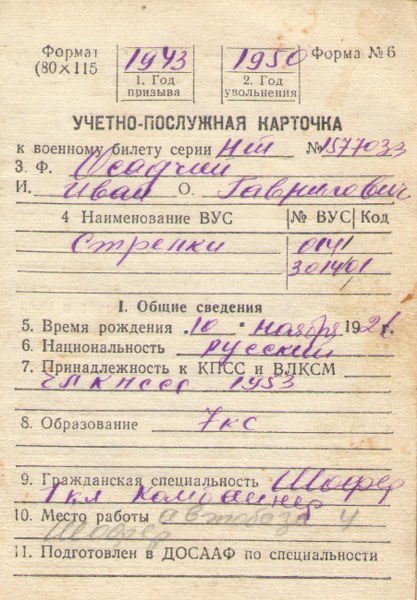 Формат 1943 1950 Форма № 6
(80×115 1. Год призыва 2. Год увольнения
УЧЕТНО-ПОСЛУЖНАЯ КАРТОЧКА
к военному билету серии НШ № 1577033
З. Ф. Осадчий
И. Иван О. Гаврилович
4 Наименование ВУС № ВУС Код
Стрелки
301401
I. Общие сведения
5. Время рождения 10 ноября 192
6. Национальность русский
7. Принадлежность к КПСС и ВЛКСМ
1953
8. Образование 7кс
9. Гражданская специальность Шофер
1 кл комбайнер
10. Место работы автобаза 4
Шофер
11. Подготовлен в ДОСААФ по специальности